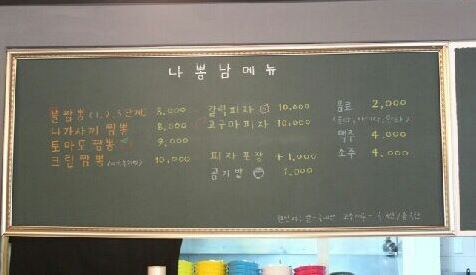 나뽕남 메뉴
불짬뽕 (1, 2, 3단계) 8,000
나가사끼 짬뽕 8,000
토마토 짬뽕 9,000
크림 짬뽕 10,000
갈릭피자 10,000
고구마피자 10,000
피자포장 +1,000
공기밥 1,000
음료 2,000
맥주 4,000
소주 4,000